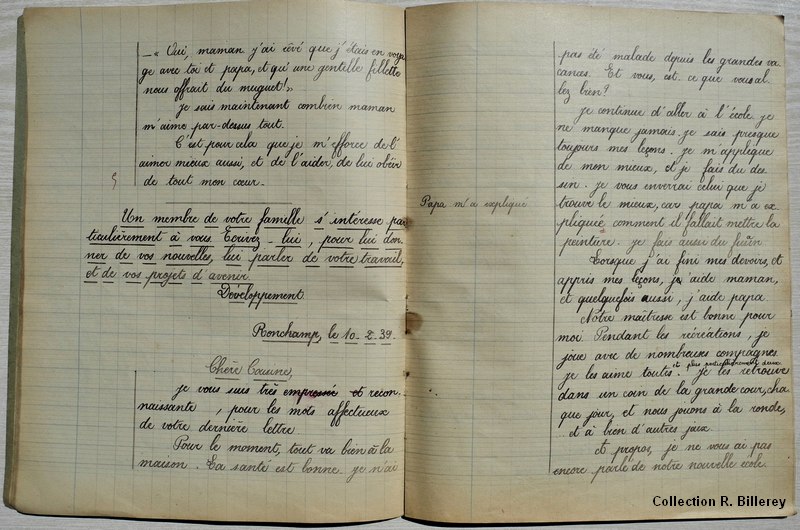 _« Oui, maman j'ai rêvé que j'étais en voya
ge avec toi et papa, et qu'une gentille fillette
nous offrait du muguet!»
Je sais maintenant combien maman
m'aime par-dessus tout.
C'est pour cela que je m'efforce de l'
aimer mieux aussi, et de l'aider, de lui obéir
de tout mon cœur._
Un membre de votre famille s'intéresse pa
ticulièrement à vous Ecrivez-lui, pour lui don
ner de vos nouvelles, lui parler de votre travail,
et de vos projets d'avenir.
Développement
Ronchamp, le 10-2-39-
Chère Cousine,
je vous suis très empressée et recon
naissante, pour les mots affectueux
de votre dernière lettre
Pour le moment, tout va bien à la
maison. La santé est bonne je n'ai
pas été malade depuis les grandes va
cances. Et vous, est-ce que vous al
lez bien?
Je continue d'aller à l'école je
ne manque jamais. je sais presque
toujours mes leçons. je m'applique
de mon mieux, et je fais du des
sin. je vous enverrai celui que je
trouve le mieux, car papa m'a ex
Papa m'a expliqué
pliquée comment il fallait mettre la
peinture. je fais aussi du
Lorsque j'ai fini mes devoirs, et
appris mes leçons, j'aide maman,
et quelquefois aussi, j'aide papa
Notre maîtresse est bonne pour
moi Pendant les récréations, je
joue avec de nombreuses compagnes
et plus particulièrement deux
je les aime toutes. je les retrouve
dans un coin de la grande cour, cha
que jour, et nous jouons à la ronde,
et à bien d'autres jeux
et propos, je ne vous ai pas
encore parlé de notre nouvelle école.
Collection R. Billerey